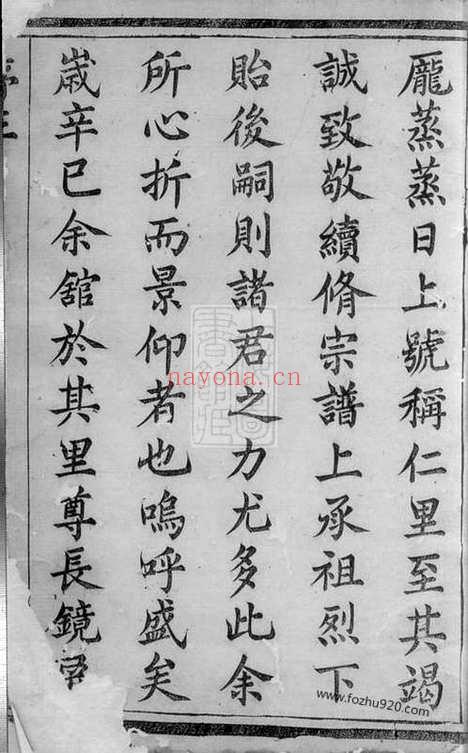 龐蒸蒸日上號稱仁里至其竭
誠致敬續脩宗譜上承祖烈下
貽後嗣則諸君之力尤多此余
所心折而景仰者也嗚呼盛矣
嵗辛巳余舘於其里尊長鏡
nayona.cn
www.fozhu920.com